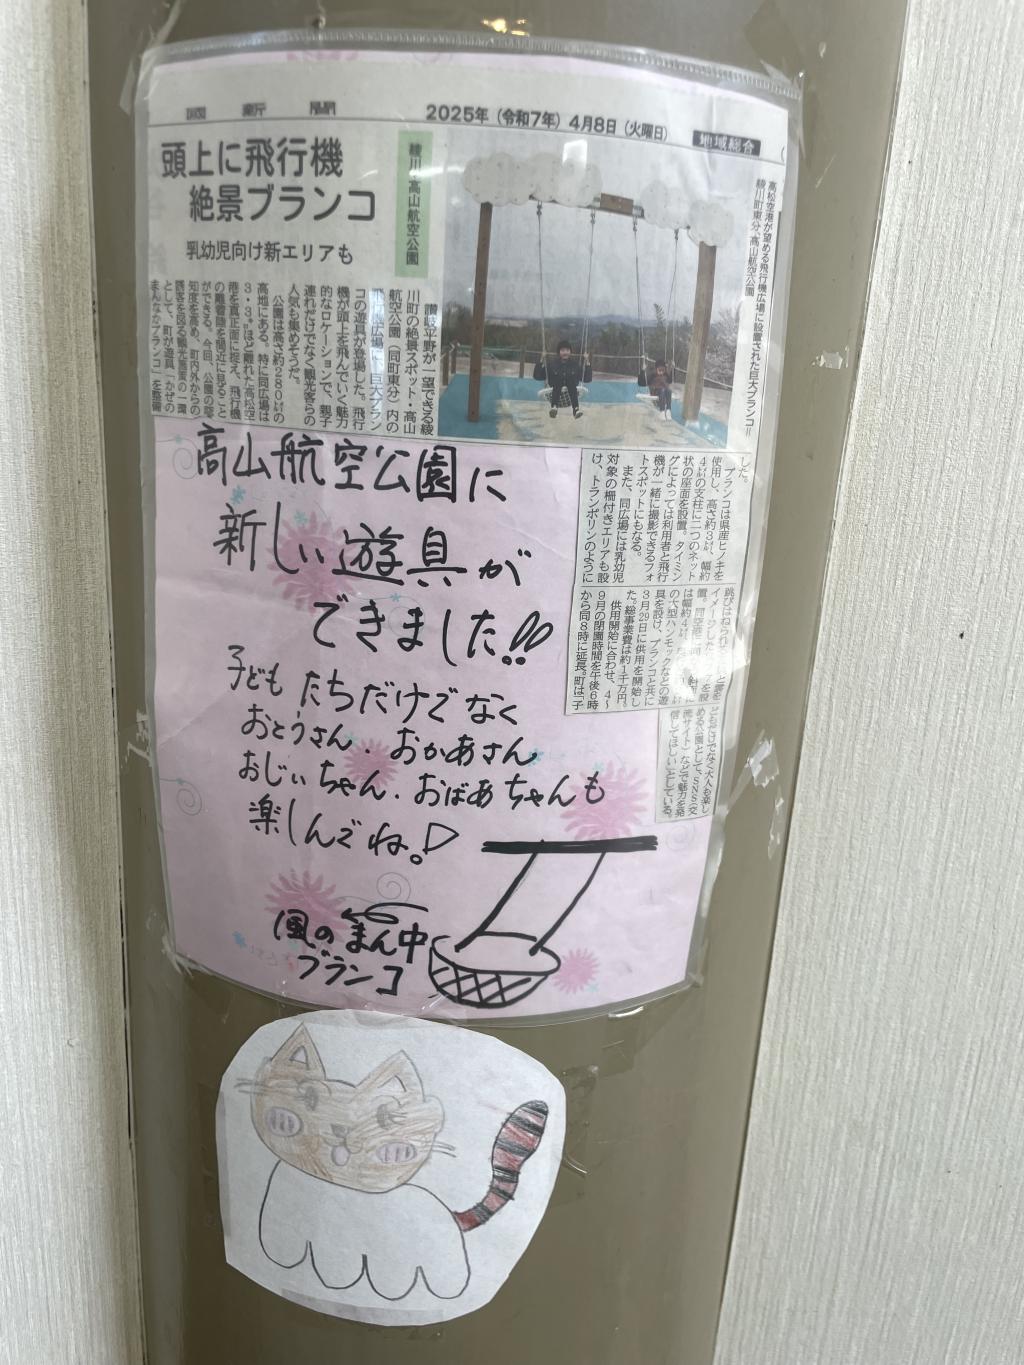 新聞
2025年(令和7年)4月8日(火曜日)
地域総合
頭上に飛行機
絶景ブランコ
乳幼児向け新エリアも
綾川・高山航空公園
高松空港が望める飛行機広場に設置された巨大ブランコ=
綾川町東分、高山航空公園
讃岐平野が一望できる綾
川町の絶景スポット・高山
航空公園(同町東分)内の
飛行機広場に、巨大ブラン
コの遊具が登場した。飛行
機が頭上を飛んでいく魅力
的なロケーションで、親子
連れだけでなく観光客らの
人気も集めそうだ。
公園は高さ約280㍍の
高地にある。特に同広場は
3・3㌔ほど離れた高松空
港を真正面に捉え、飛行機
の離着陸を間近に見ること
ができる。今回、公園の
知度を高め、町内外からの
誘客を図る観光施策の一環
として、町が遊具「かぜの
まんなかブランコ」を整備
した。
ブランコは県産ヒノキを
使用し、高さ約3㍍、幅約
4㍍の支柱に二つのネット
状の座面を設置。タイミン
グによっては利用者と飛行
機が一緒に撮影できるフォ
トスポットにもなる。
また、同広場には乳幼児
対象の柵付きエリアも設
け、トランポリンのように
の大型ハンモックなどの遊
具を設け、ブランコと共に
3月29日に供用を開始し
た。総事業費は約1千万円。
供用開始に合わせ、4～
9月の閉園時間を午後6時
から同8時に延長。町は「子
どもだけでなく大人も楽し
める公園として、SNS(交
流サイト)などで魅力を発
信してほしい」としている。
高山航空公園に
新しい遊具が
できました!!
子どもたちだけでなく
おとうさん.おかあさん
おじいちゃん.おばあちゃんも
楽しんでね。♡
風のまん中
ブランコ